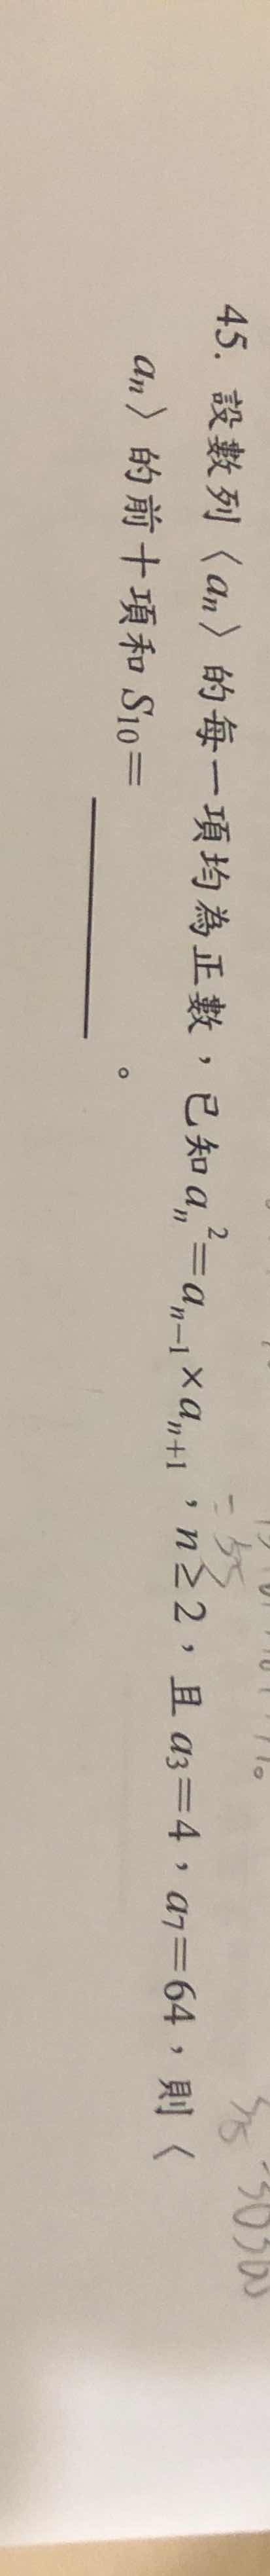 45. 設數列〈aₙ〉的每一項均為正數，已知aₙ²=aₙ₋₁×aₙ₊₁，n≥2，且a₃=4，a₇=64，則〈
aₙ〉的前十項和S₁₀=________。